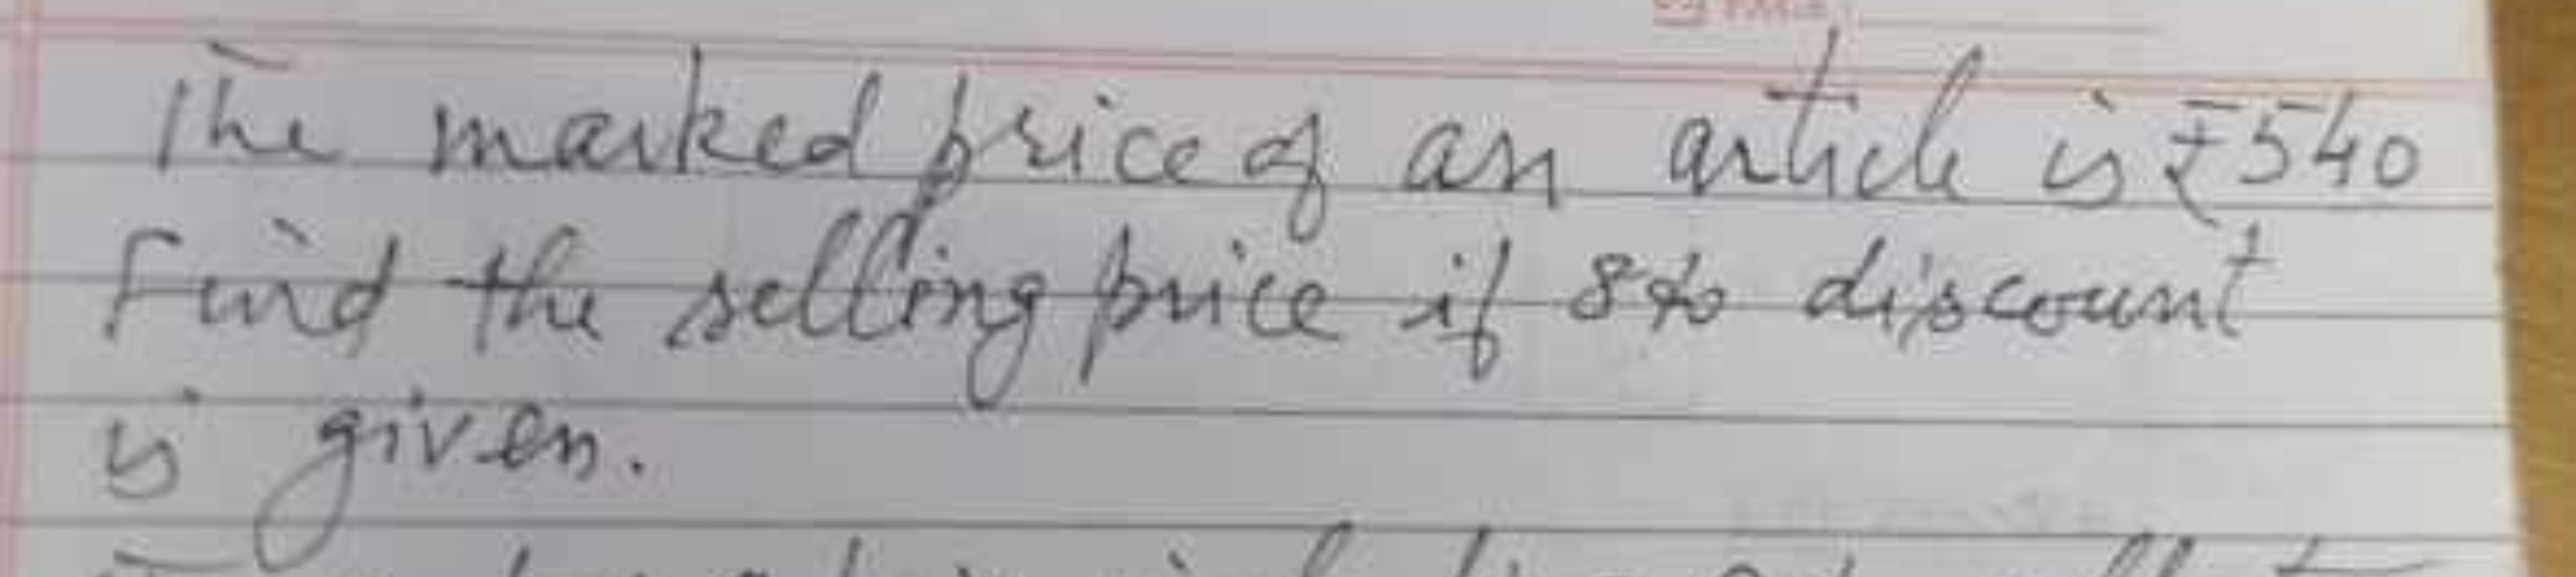 The marked price of an article is ₹540
Find the selling price if 8% discount
is given.